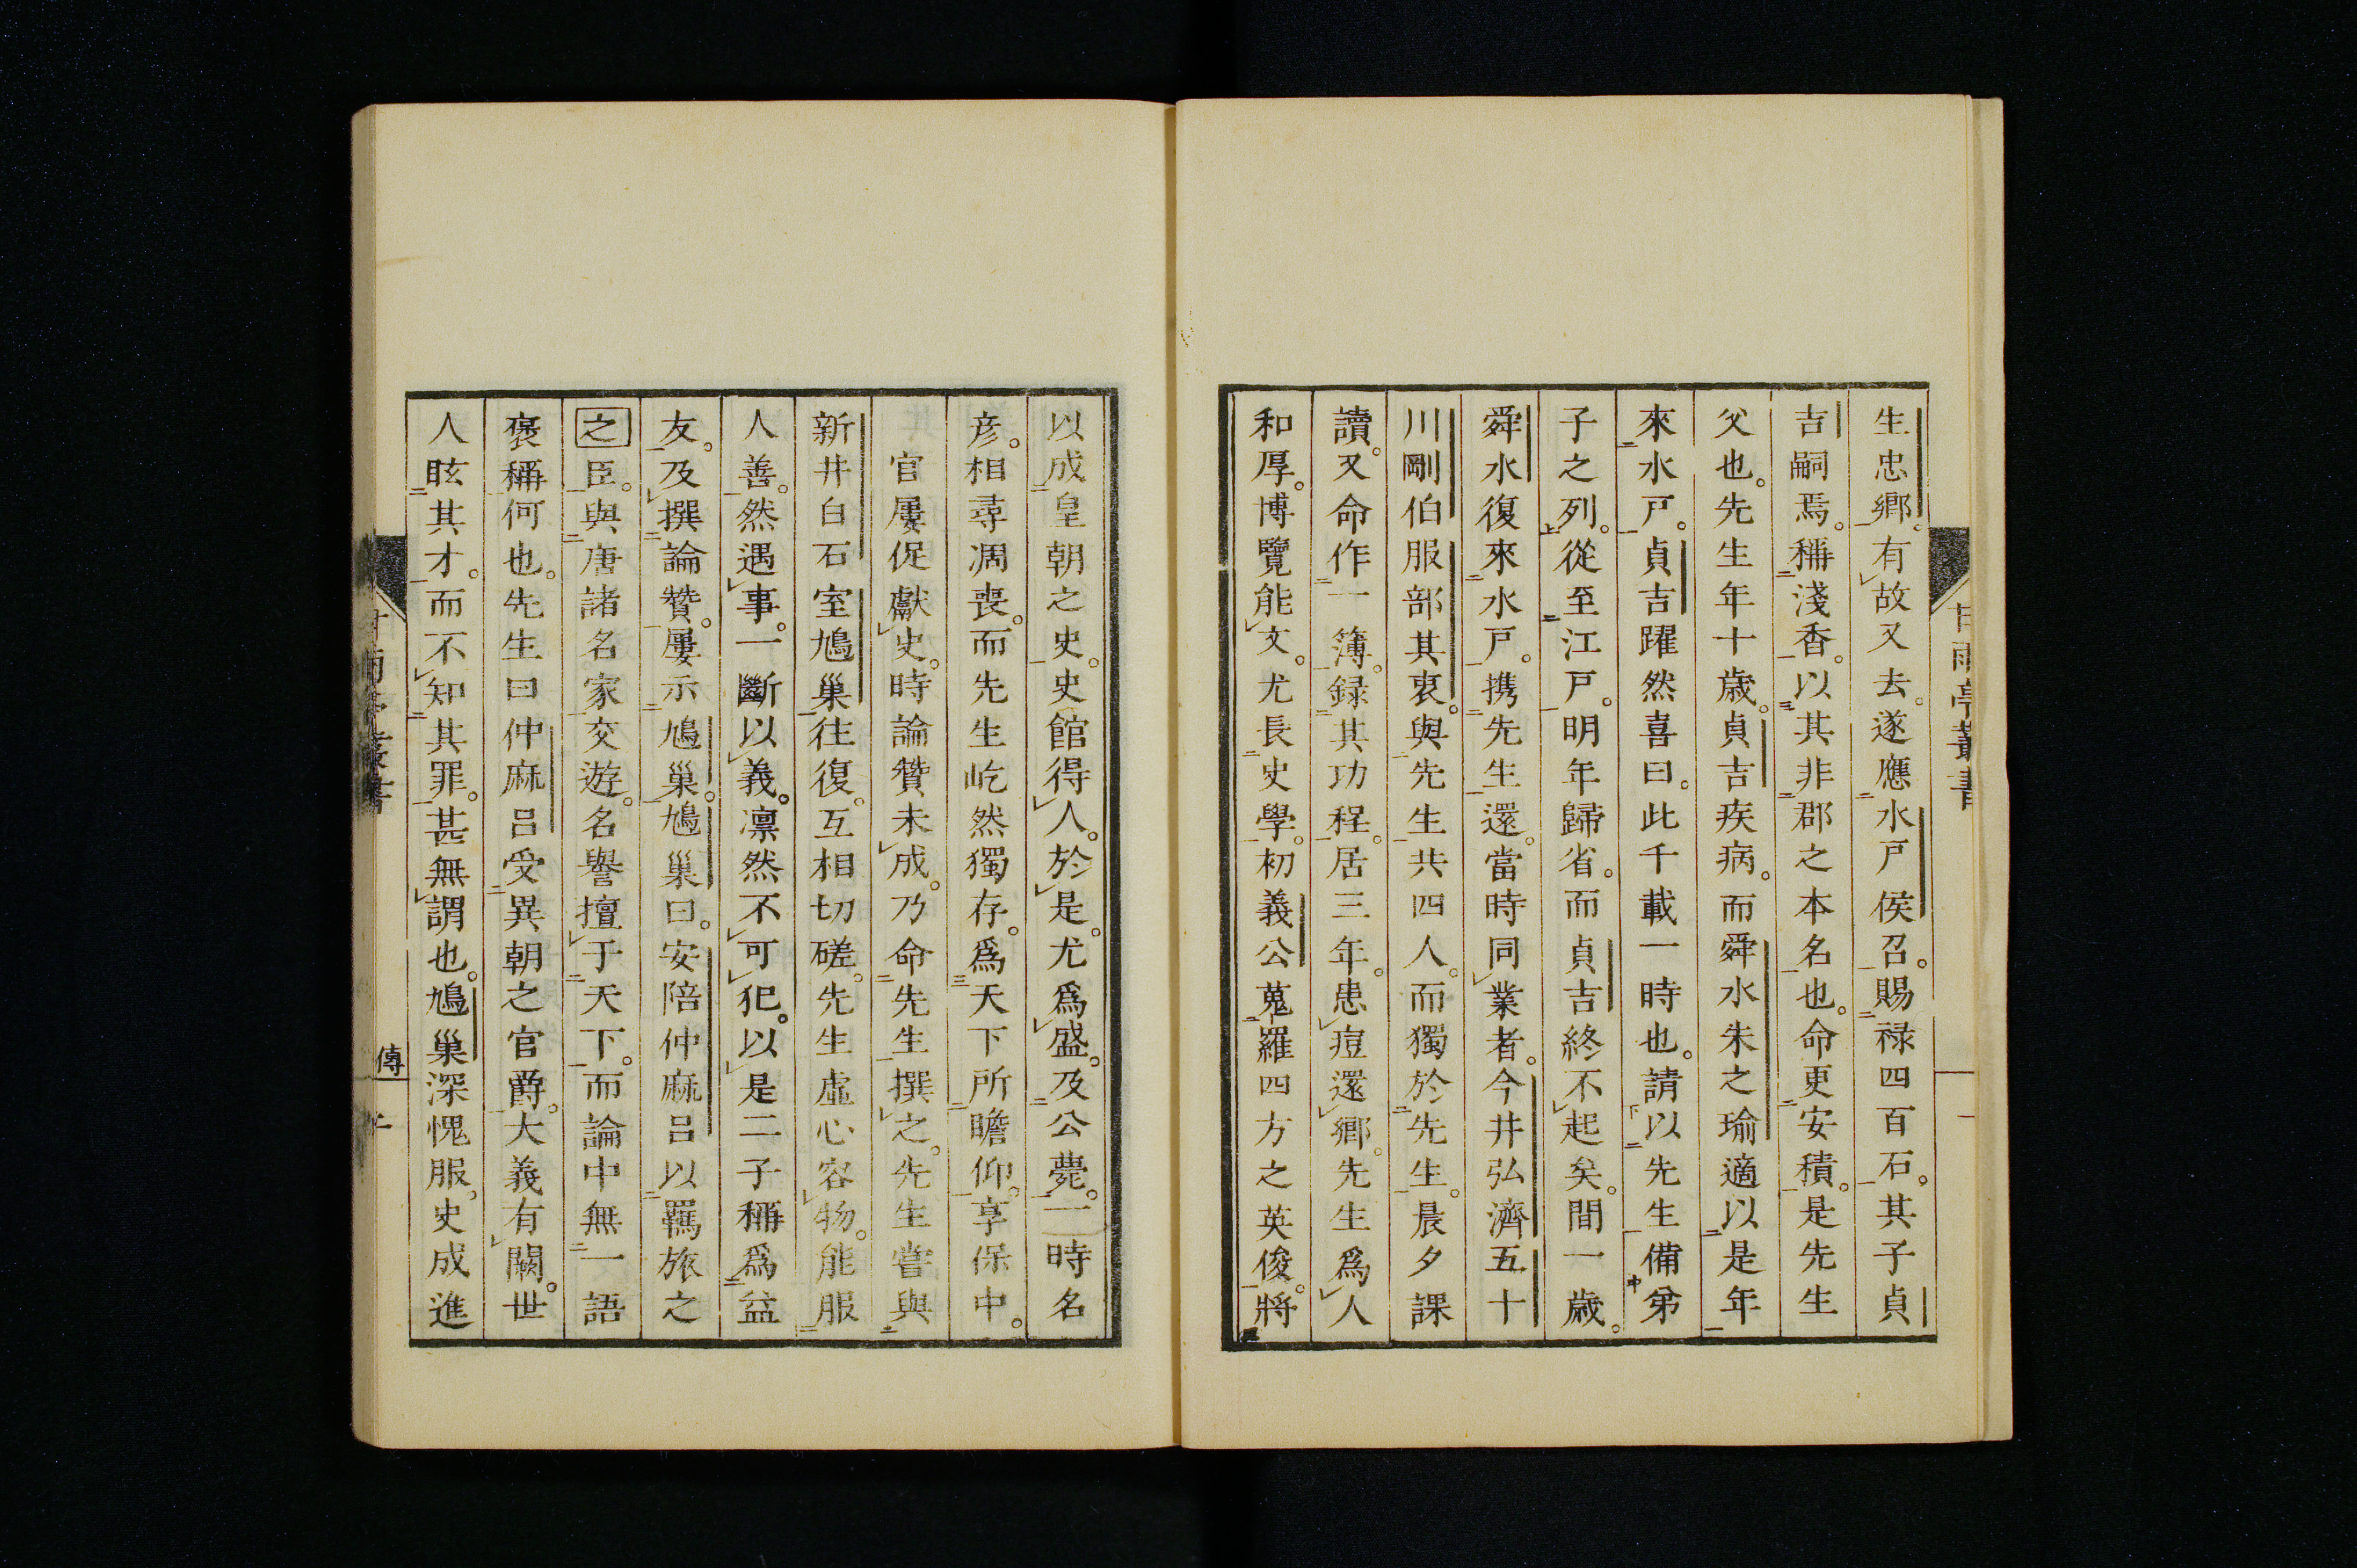 生忠鄉。有故又去。遂應水戸侯召。賜祿四百石。其子貞
吉嗣焉。稱淺香。以其非郡之本名也。命更安積。是先生
父也。先生年十歲。貞吉疾病。而舜水朱之瑜適以是年
來水戸。貞吉躍然喜曰。此千載一時也。請以先生備弟
子之列。從至江戸。明年歸省。而貞吉終不起矣。間一歲。
舜水復來水戸。携先生還。當時同業者。今井弘濟五十
川剛伯服部其衷。與先生共四人。而獨於先生。晨夕課
讀。又命作一簿。録其功程。居三年。患痘還鄉。先生爲人
和厚。博覽能文。尤長史學。初義公蒐羅四方之英俊。將
以成皇朝之史。史館得人。於是。尤爲盛。及公薨。一時名
彦。相尋凋喪。而先生屹然獨存。爲天下所瞻仰。享保中。
官屢促獻史。時論贊未成。乃命先生撰之。先生嘗與
新井白石室鳩巢往復。互相切磋。先生虛心容物。能服
人善。然遇事。一斷以義。凛然不可犯。以是二子稱爲益
友。及撰論贊。屢示鳩巢。鳩巢曰。安陪仲麻呂以羈旅之
之臣。與唐諸名家交遊。名譽擅于天下。而論中無一語
褒稱何也。先生曰仲麻呂受異朝之官爵。大義有闕。世
人眩其才。而不知其罪。甚無謂也。鳩巢深愧服。史成進
甘雨亭叢書
傳